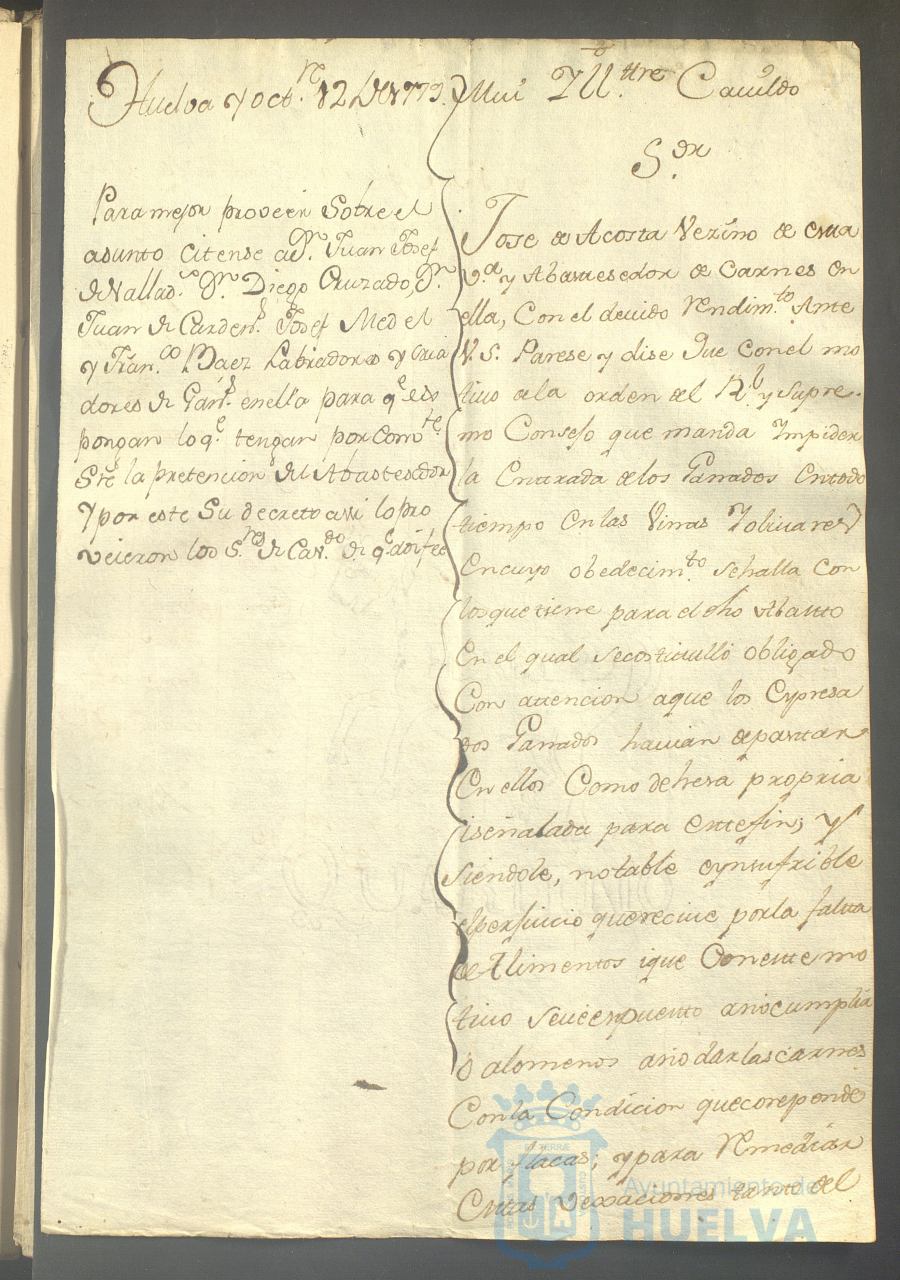 Huelva y octre. 12 de 1779.
Para mejor proveer Sobre el
asunto Citense a Dn. Juan Josef
de Vallado. Dn. Diego Cruzado, Dn.
Juan de Cardens. Josef Medel
y Franco. Baez Labradores y Cria
dores de Gands. en ella para qe. es
pongan lo qe. tengan por Comte.
Sre. la pretencion del Abastesedor
Y por este Su decreto assi lo pro
veieron los Sres. de Cavdo. de qe. doi fee
Mui Yllttre Cavildo
Sor.
Jose de Acosta Vezino de esta
va. y Abastesedor de Carnes en
ella, Con el devido Rendimto. Ante
V.S. Parese y dise Que con el mo
tivo de la orden del Rl. y Supre-
mo Consejo que manda Impider
la Entrada de los Ganados en todo
tiempo en las Viñas Y olivares
En cuyo obedecimto. se halla Con
los que tiene para el dho Abasto
En el qual se costituilló obligado
Con attencion a que los Expresa
dos Ganados havian de pastar
En ellos Como dehesa propria
i señalada para este fin; y
Siendole, notable e ynsufrible
el perjuicio que recive por la falta
de Alimentos i que Con este mo
tivo se ve espuesto a no cumplir
ó a lo menos a no dar las carnes
Con la Condicion que coreponde
por flacas; y para Remediar
Estas vexaciones tanto del
Ayuntamiento de
HUELVA